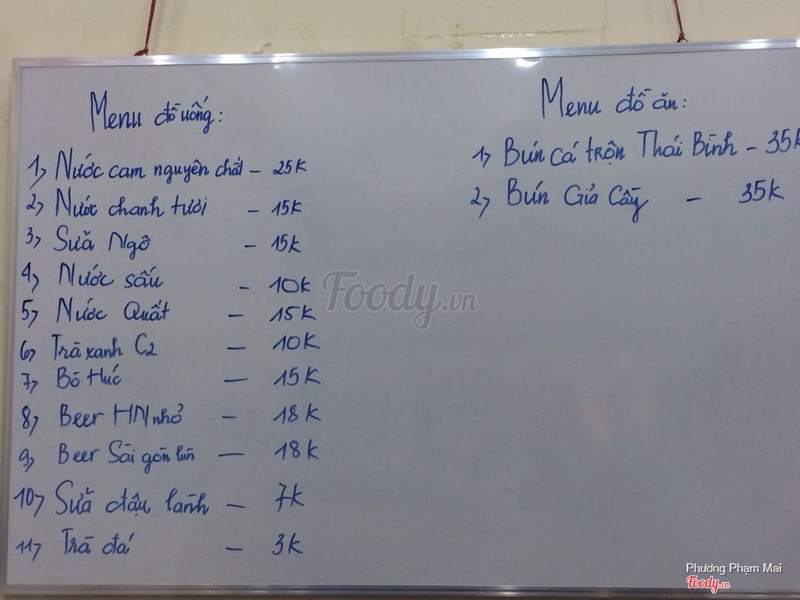 Menu đồ uống:
1, Nước cam nguyên chất - 25K
2, Nước chanh tươi - 15K
3, Sữa Ngô - 15K
4, Nước sấu - 10K
5, Nước Quất - 15K
6, Trà xanh C2 - 10K
7, Bò Húc - 15K
8, Beer HN nhỏ - 18K
9, Beer Sài gòn lùn - 18K
10, Sữa đậu lành - 7K
11, Trà đá - 3K
Menu đồ ăn:
1, Bún cá trộn Thái Bình - 35K
2, Bún Giả Cầy - 35K
Foody.vn
Phương Phạm Mai
Foody.vn